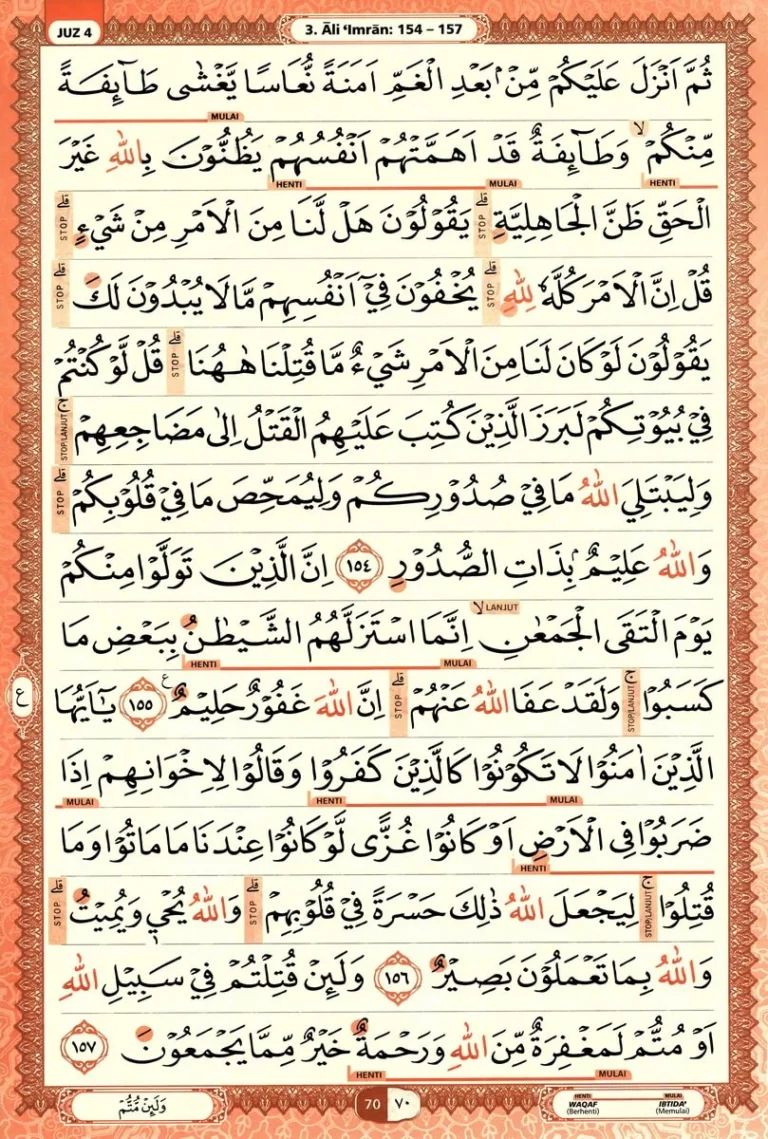 JUZ 4
3. Āli ‘Imrān: 154 – 157
ثُمَّ اَنْزَلَ عَلَيْكُمْ مِّنْۢ بَعْدِ الْغَمِّ اَمَنَةً نُّعَاسًا يَّغْشٰى طَاۤىِٕفَةً
MULAI
مِّنْكُمْ ۙ وَطَاۤىِٕفَةٌ قَدْ اَهَمَّتْهُمْ اَنْفُسُهُمْ يَظُنُّوْنَ بِاللّٰهِ غَيْرَ
HENTI MULAI HENTI
الْحَقِّ ظَنَّ الْجَاهِلِيَّةِ ۗ STOP يَقُوْلُوْنَ هَلْ لَّنَا مِنَ الْاَمْرِ مِنْ شَيْءٍ ۗ STOP
قُلْ اِنَّ الْاَمْرَ كُلَّهٗ لِلّٰهِ ۗ STOP يُخْفُوْنَ فِيْٓ اَنْفُسِهِمْ مَّا لَا يُبْدُوْنَ لَكَ ۗ STOP
يَقُوْلُوْنَ لَوْ كَانَ لَنَا مِنَ الْاَمْرِ شَيْءٌ مَّا قُتِلْنَا هٰهُنَا ۗ STOP قُلْ لَّوْ كُنْتُمْ
فِيْ بُيُوْتِكُمْ لَبَرَزَ الَّذِيْنَ كُتِبَ عَلَيْهِمُ الْقَتْلُ اِلٰى مَضَاجِعِهِمْ ۚ STOP/LANJUT
وَلِيَبْتَلِيَ اللّٰهُ مَا فِيْ صُدُوْرِكُمْ وَلِيُمَحِّصَ مَا فِيْ قُلُوْبِكُمْ ۗ STOP
وَاللّٰهُ عَلِيْمٌ ۢبِذَاتِ الصُّدُوْرِ ١٥٤ اِنَّ الَّذِيْنَ تَوَلَّوْا مِنْكُمْ
يَوْمَ الْتَقَى الْجَمْعٰنِ ۙ LANJUT اِنَّمَا اسْتَزَلَّهُمُ الشَّيْطٰنُ بِبَعْضِ مَا
HENTI MULAI
كَسَبُوْا ۚ STOP/LANJUT وَلَقَدْ عَفَا اللّٰهُ عَنْهُمْ ۗ STOP اِنَّ اللّٰهَ غَفُوْرٌ حَلِيْمٌ ࣖ ١٥٥ يٰٓاَيُّهَا
ع
الَّذِيْنَ اٰمَنُوْا لَا تَكُوْنُوْا كَالَّذِيْنَ كَفَرُوْا وَقَالُوْا لِاِخْوَانِهِمْ اِذَا
MULAI HENTI MULAI
ضَرَبُوْا فِى الْاَرْضِ اَوْ كَانُوْا غُزًّى لَّوْ كَانُوْا عِنْدَنَا مَا مَاتُوْا وَمَا
HENTI
قُتِلُوْا ۚ STOP/LANJUT لِيَجْعَلَ اللّٰهُ ذٰلِكَ حَسْرَةً فِيْ قُلُوْبِهِمْ ۗ STOP وَاللّٰهُ يُحْيٖ وَيُمِيْتُ ۗ STOP
وَاللّٰهُ بِمَا تَعْمَلُوْنَ بَصِيْرٌ ١٥٦ وَلَىِٕنْ قُتِلْتُمْ فِيْ سَبِيْلِ اللّٰهِ
اَوْ مُتُّمْ لَمَغْفِرَةٌ مِّنَ اللّٰهِ وَرَحْمَةٌ خَيْرٌ مِّمَّا يَجْمَعُوْنَ ١٥٧
HENTI MULAI
وَلَىِٕنْ مُّتُّمْ
70 ٧٠
HENTI WAQAF (Berhenti)
MULAI IBTIDA' (Memulai)